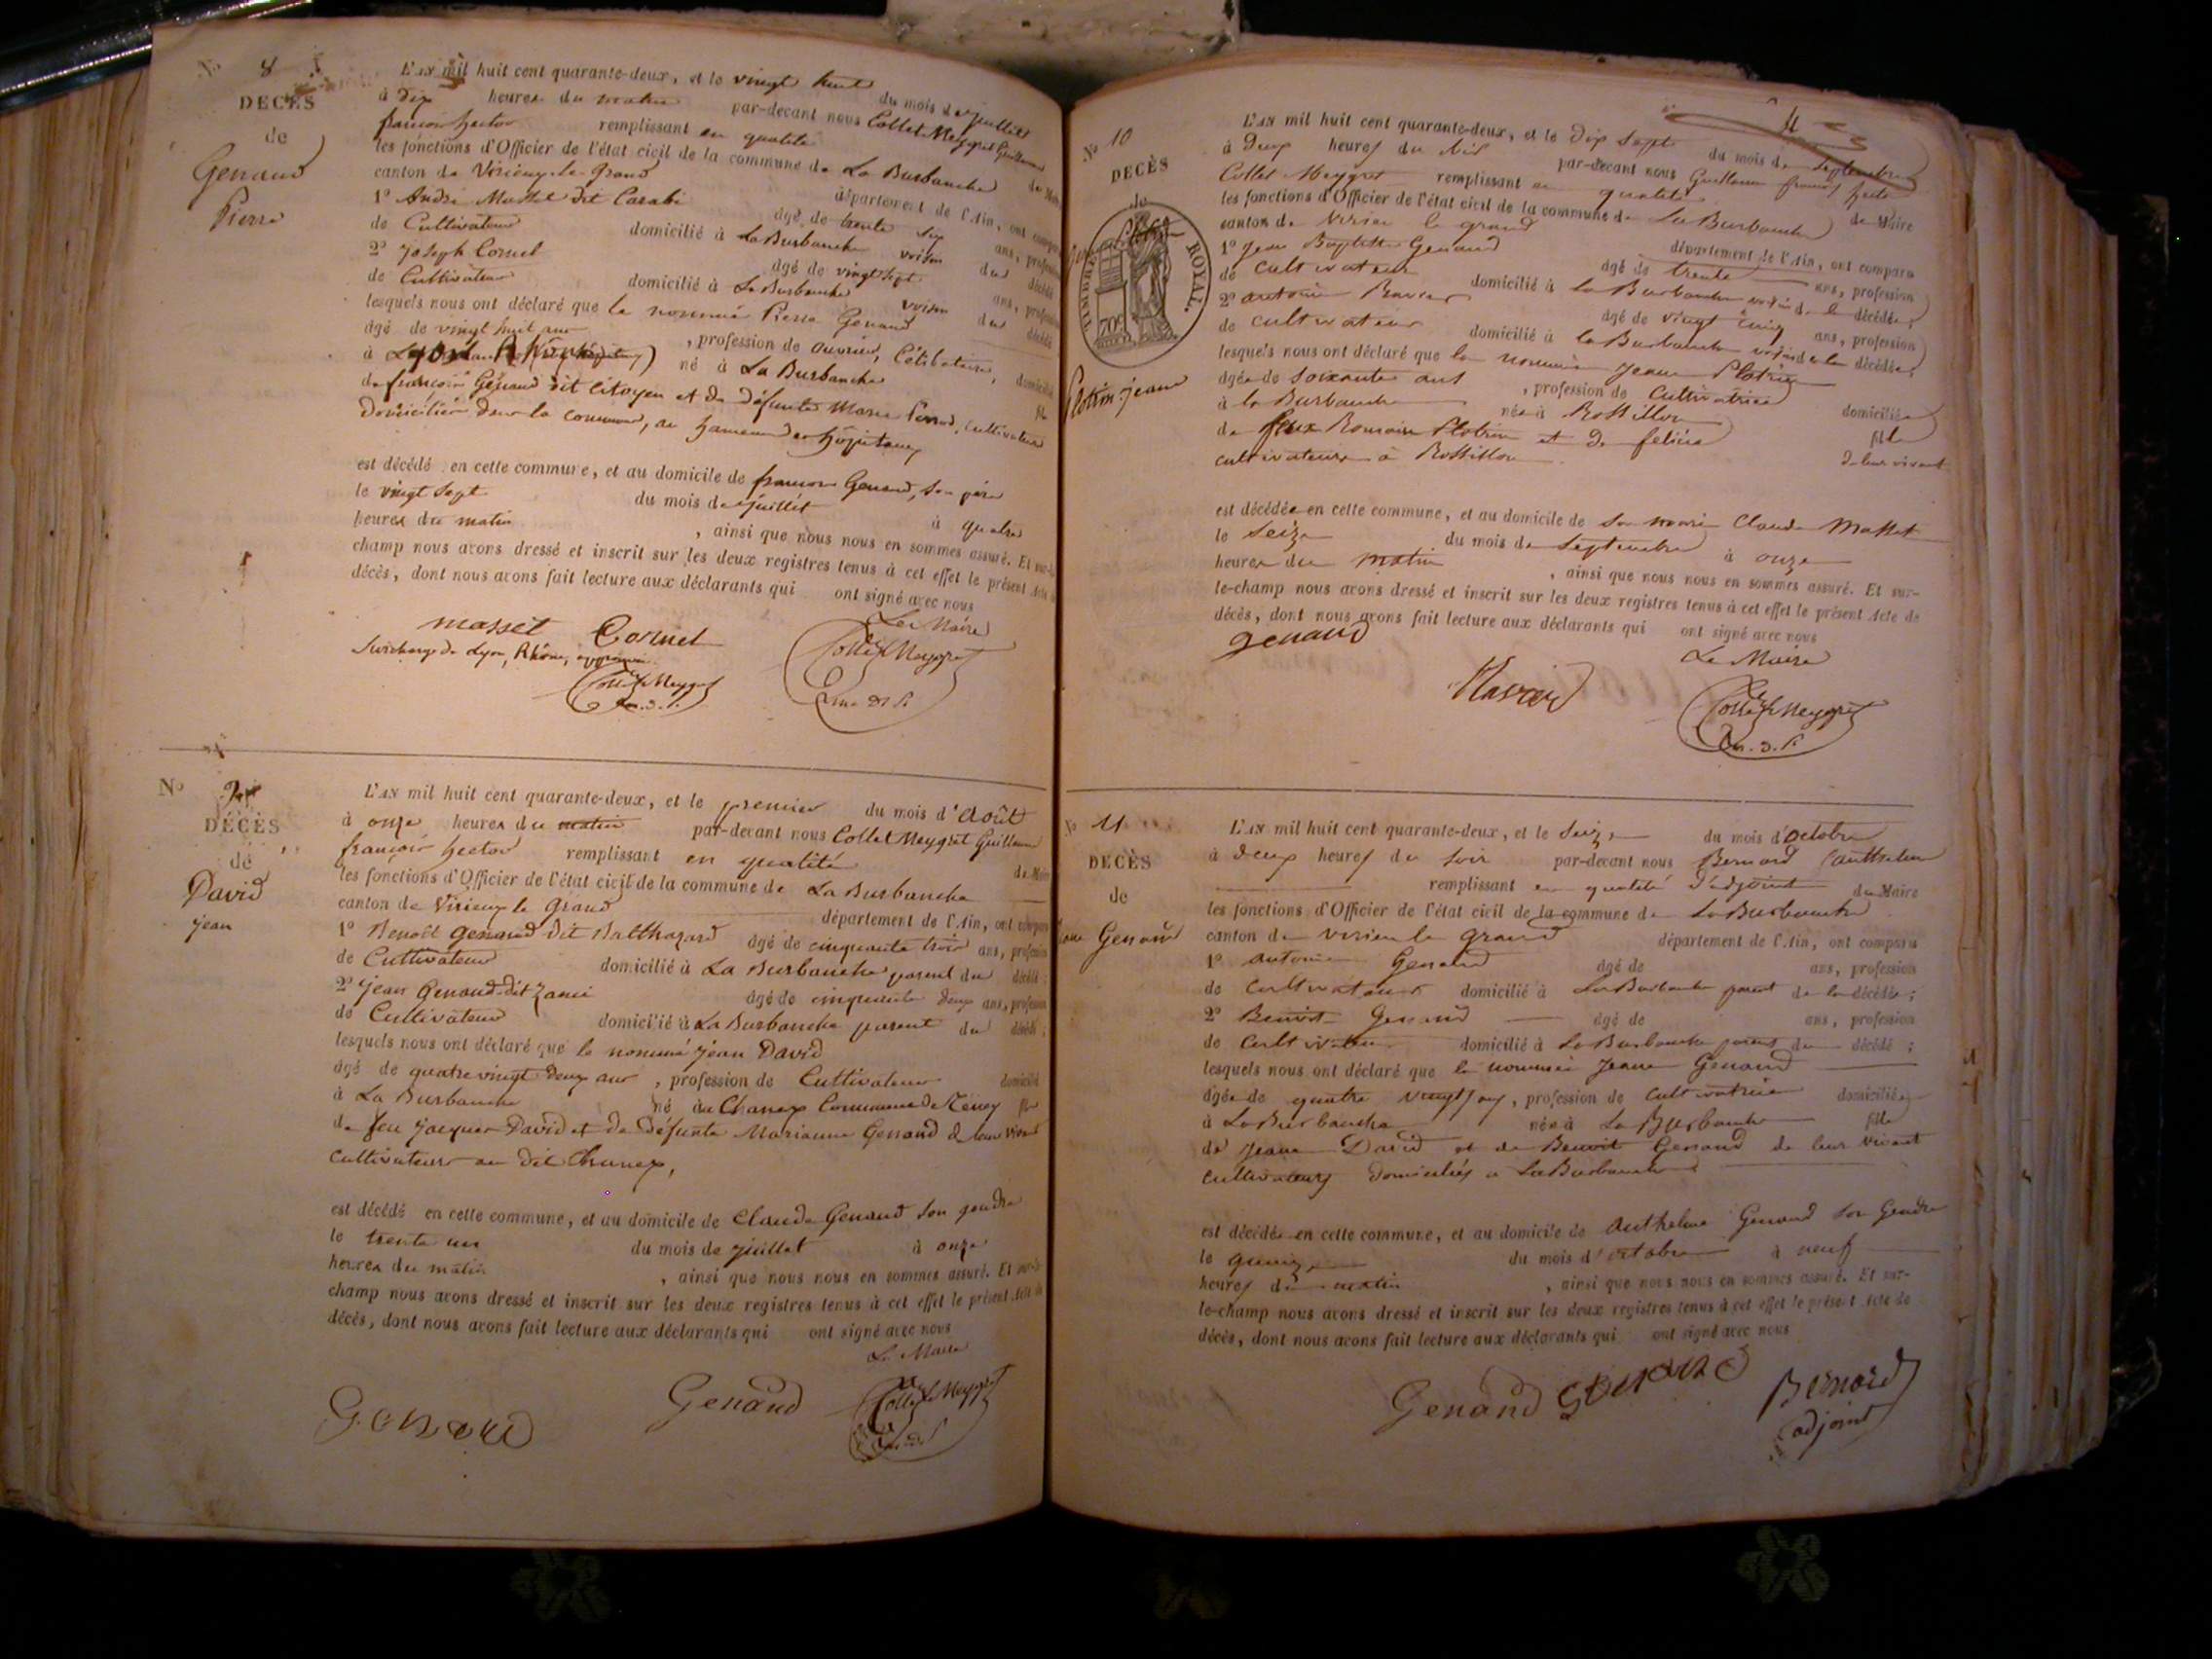 N° 8
DECÈS
de
Genaud
Pierre
L'AN mil huit cent quarante-deux, et le vingt huit du mois de juillet
à dix heures du matin par-devant nous Collet Meygret Guillaume
françois hector remplissant en qualité de Maire
les fonctions d'Officier de l'état civil de la commune de La Burbanche
canton de Virieux-le-Grand département de l'Ain, ont comparu
1° André Masset dit Carabi âgé de trente six ans, profession
de Cultivateur domicilié à La Burbanche voisin du décédé
2° Joseph Cornet âgé de vingt sept ans, profession
de Cultivateur domicilié à La Burbanche voisin du décédé
lesquels nous ont déclaré que le nommé Pierre Genaud
âgé de vingt huit ans, profession de ouvrier, Célibataire, domicilié
à Lyon Rhône né à La Burbanche fils
de françois Génaud dit Citoyen et de défunte Marie cultivateurs
domiciliés dans la commune, au hameau des hôpitaux
est décédé en cette commune, et au domicile de françois Genaud, son père
le vingt sept du mois de juillet à quatre
heures du matin, ainsi que nous nous en sommes assuré. Et sur-le
champ nous avons dressé et inscrit sur les deux registres tenus à cet effet le présent Acte de
décès, dont nous avons fait lecture aux déclarants qui ont signé avec nous
Le Maire
masset Cornet Collet Meygret
Surcharge de Lyon, Rhône, approuvée
Collet Meygret
N° 9
DÉCÈS
de
David
jean
L'AN mil huit cent quarante-deux, et le premier du mois d'Août
à onze heures du matin par-devant nous Collet Meygret Guillaume
françois hector remplissant en qualité de Maire
les fonctions d'Officier de l'état civil de la commune de La Burbanche
canton de Virieux le Grand département de l'Ain, ont comparu
1° Benoît Genaud dit Balthazard âgé de cinquante trois ans, profession
de Cultivateur domicilié à La Burbanche parent du décédé
2° jean Genaud dit âgé de cinquante deux ans, profession
de Cultivateur domicilié à La Burbanche parent du décédé ;
lesquels nous ont déclaré que le nommé jean David
âgé de quatre vingt deux ans, profession de Cultivateur domicilié
à La Burbanche né au Chanex Commune de fils
de feu jacques David et de défunte Marianne Genaud de leur vivant
cultivateurs au dit Chanex,
est décédé en cette commune, et au domicile de Claude Genaud son gendre
le trente un du mois de juillet à onze
heures du matin, ainsi que nous nous en sommes assuré. Et sur-le
champ nous avons dressé et inscrit sur les deux registres tenus à cet effet le présent Acte de
décès, dont nous avons fait lecture aux déclarants qui ont signé avec nous
Le Maire
Genaud Genaud Collet Meygret
N° 10
DECÈS
de
TIMBRE ROYAL.
70c
Plotin jeane
L'AN mil huit cent quarante-deux, et le dix sept du mois de Septembre
à deux heures du soir par-devant nous Guillaume françois hector
Collet Meygret remplissant en qualité de Maire
les fonctions d'Officier de l'état civil de la commune de La Burbanche
canton de Virieu le grand département de l'Ain, ont comparu
1° jean Baptiste Genaud âgé de trente ans, profession
de cultivateur domicilié à la Burbanche voisin de la décédée ;
2° antoine âgé de vingt cinq ans, profession
de cultivateur domicilié à la Burbanche voisin de la décédée ;
lesquels nous ont déclaré que la nommée jeane Plotin
âgée de soixante ans, profession de cultivatrice domiciliée
à la Burbanche née à Rossillon fille
de feux Romain Plotin et de felicie de leur vivant
cultivateurs à Rossillon
est décédée en cette commune, et au domicile de son mari Claude Masset
le seize du mois de septembre à onze
heures du matin, ainsi que nous nous en sommes assuré. Et sur-
le-champ nous avons dressé et inscrit sur les deux registres tenus à cet effet le présent Acte de
décès, dont nous avons fait lecture aux déclarants qui ont signé avec nous
Le Maire
genaud
Collet Meygret
N° 11
DECÈS
de
Genaud
L'AN mil huit cent quarante-deux, et le seize du mois d'octobre
à deux heures du soir par-devant nous Bernard Canthelme
remplissant en qualité d'adjoint du Maire
les fonctions d'Officier de l'état civil de la commune de La Burbanche
canton de virieu le grand département de l'Ain, ont comparu
1° antoine Genaud âgé de ans, profession
de cultivateur domicilié à La Burbanche parent de la décédée ;
2° Benoit Genaud âgé de ans, profession
de cultivateur domicilié à La Burbanche parent du décédé ;
lesquels nous ont déclaré que la nommée Jeane Genaud
âgée de quatre vingt, profession de cultivatrice domiciliée
à La Burbanche née à La Burbanche fille
de Jeane David et de Benoit Genaud de leur vivant
cultivateurs domiciliés à La Burbanche
est décédée en cette commune, et au domicile de Anthelme Genaud son Gendre
le quinze du mois d'octobre à neuf
heures du matin, ainsi que nous nous en sommes assuré. Et sur-
le-champ nous avons dressé et inscrit sur les deux registres tenus à cet effet le présent Acte de
décès, dont nous avons fait lecture aux déclarants qui ont signé avec nous
Genand Genand Bernard
adjoint